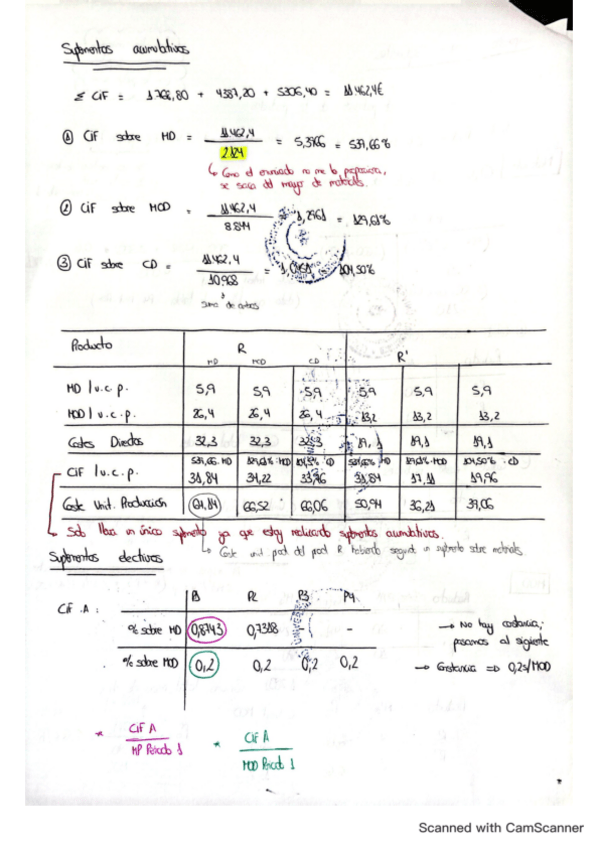 Suplementos acumulativos
Σ CiF = 1.768,80 + 4387,20 + 5306,40 = 11462,4€
① CiF sobre MD = 11462,4 / 2124 = 5,3966 = 539,66%
↳ Como el enunciado no me lo proporciona,
se saca del mayor de materiales.
② CiF sobre MOD = 11462,4 / 8.844 = 1,2961 = 129,61%
③ CiF sobre CD = 11462,4 / 10968 = 1,0451 = 104,50%
Suma de ambos
Producto R R'
MD MOD CD
MD / u.c.p. 5,9 5,9 5,9 5,9 5,9 5,9
MOD / u.c.p. 26,4 26,4 26,4 13,2 13,2 13,2
Costes Directos 32,3 32,3 32,3 19,1 19,1 19,1
539,66% MD 129,61% MOD 104,50% CD 539,66% MD 129,61% MOD 104,50% CD
CiF / u.c.p. 31,84 34,22 33,76 31,84 17,11 19,96
Coste Unit. Producción 64,14 66,52 66,06 50,94 36,21 39,06
↳ Solo lleva un único suplemento ya que estoy realizando suplementos acumulativos.
↳ Coste unit prod del prod R fabricado según un suplemento sobre materiales.
Suplementos electivos
CiF A: P1 P2 P3 P4
% sobre MD 0,8743 0,7318 - -
% sobre MOD 0,2 0,2 0,2 0,2
→ No hay constancia,
pasamos al siguiente
→ Constancia => 0,2€/MOD
* CiF A / MP Periodo 1
* CiF A / MOD Period 1
Scanned with CamScanner